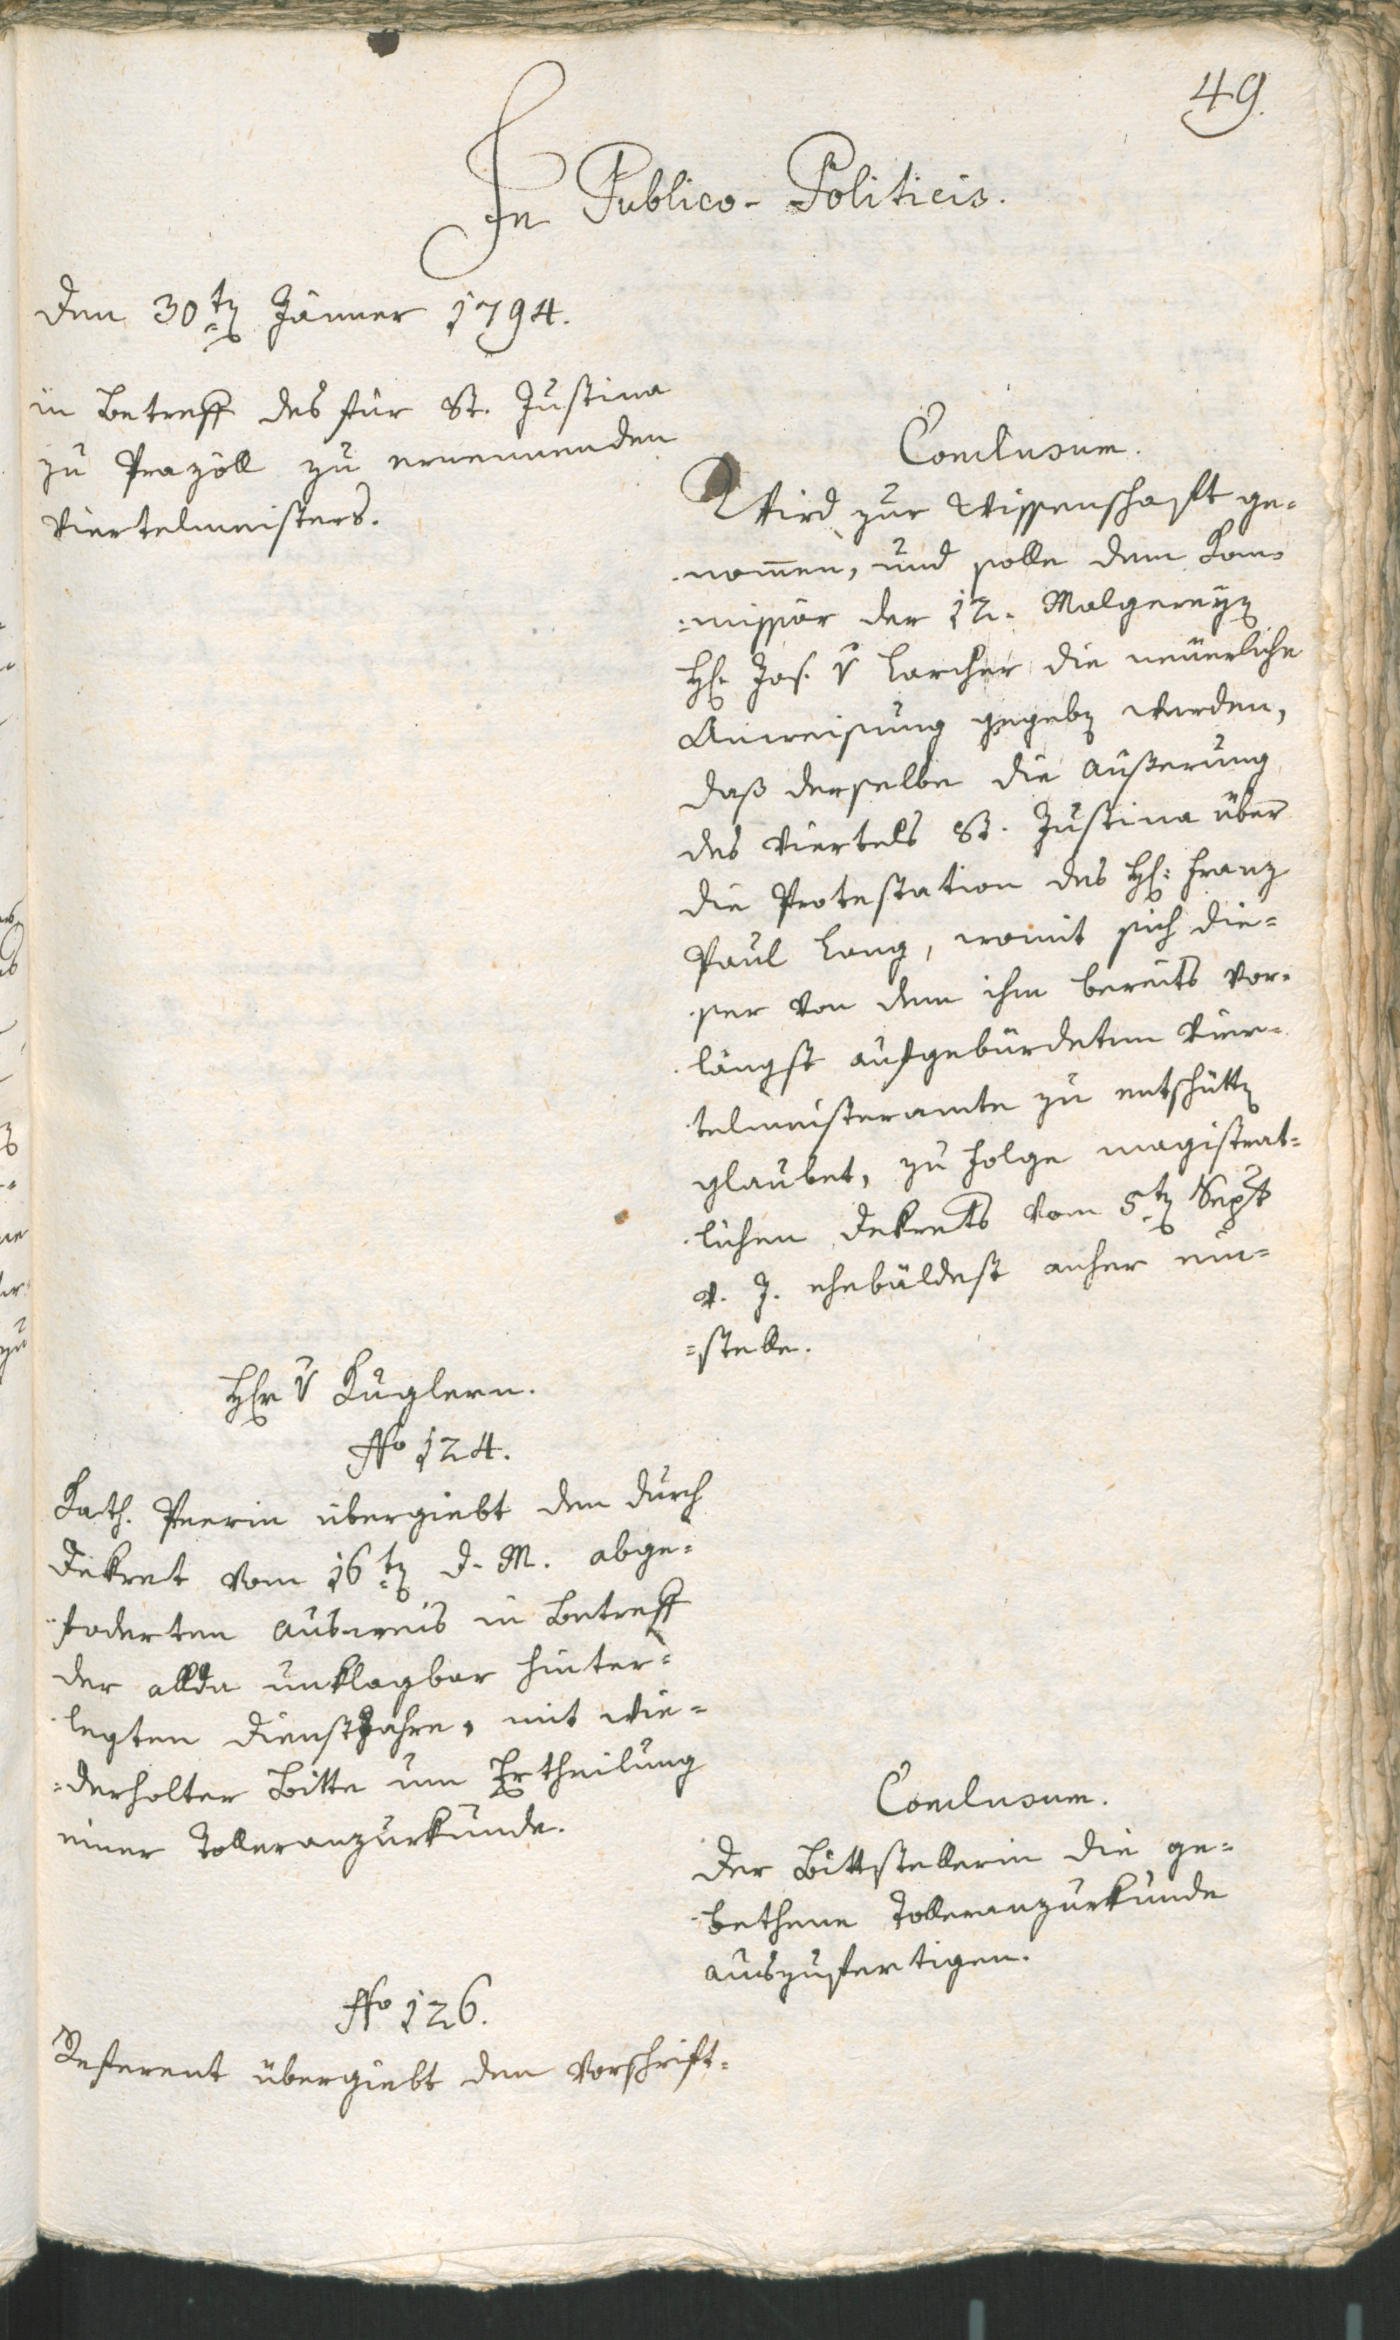 49.
In Publico-Politicis.
Den 30ten Jänner 1794.
in Betreff des für St. Justina
zu Prazöll zu ernennenden
Viertelmeisters.
Conclusum.
Wird zur Wissenschaft ge-
nom̄en, und solle dem Kom-
missär der 12. Malgereyen
H. Jos. v Larcher die neüerliche
Anweisung gegeben werden,
daß derselbe die Aüßerung
des Viertels St. Justina über
die Protestation des H: Franz
Paul Lang, womit sich die-
ser von dem ihm bereits vor-
längst aufgebürdetem Vier-
telmeisteramte zu entschütten
glaubet, zu Folge magistrat-
lichen Dekrets vom 5ten Sept
v. J. ehebäldest anher ein-
=stelle.
Hr v Kuglern.
No 124.
Kath. Peerin übergiebt den durch
Dekret vom 16ten d. M. abge-
foderten Ausweis in Betreff
der allda unklagbar hinter-
legten Dienstjahre, mit wie-
=derholter Bitte um Ertheilung
einer Tolleranzurkunde.
Conclusum.
Der Bittstellerin die ge-
bethene Tolleranzurkunde
auszufertigen.
No 126.
Referent übergiebt den vorschrift-